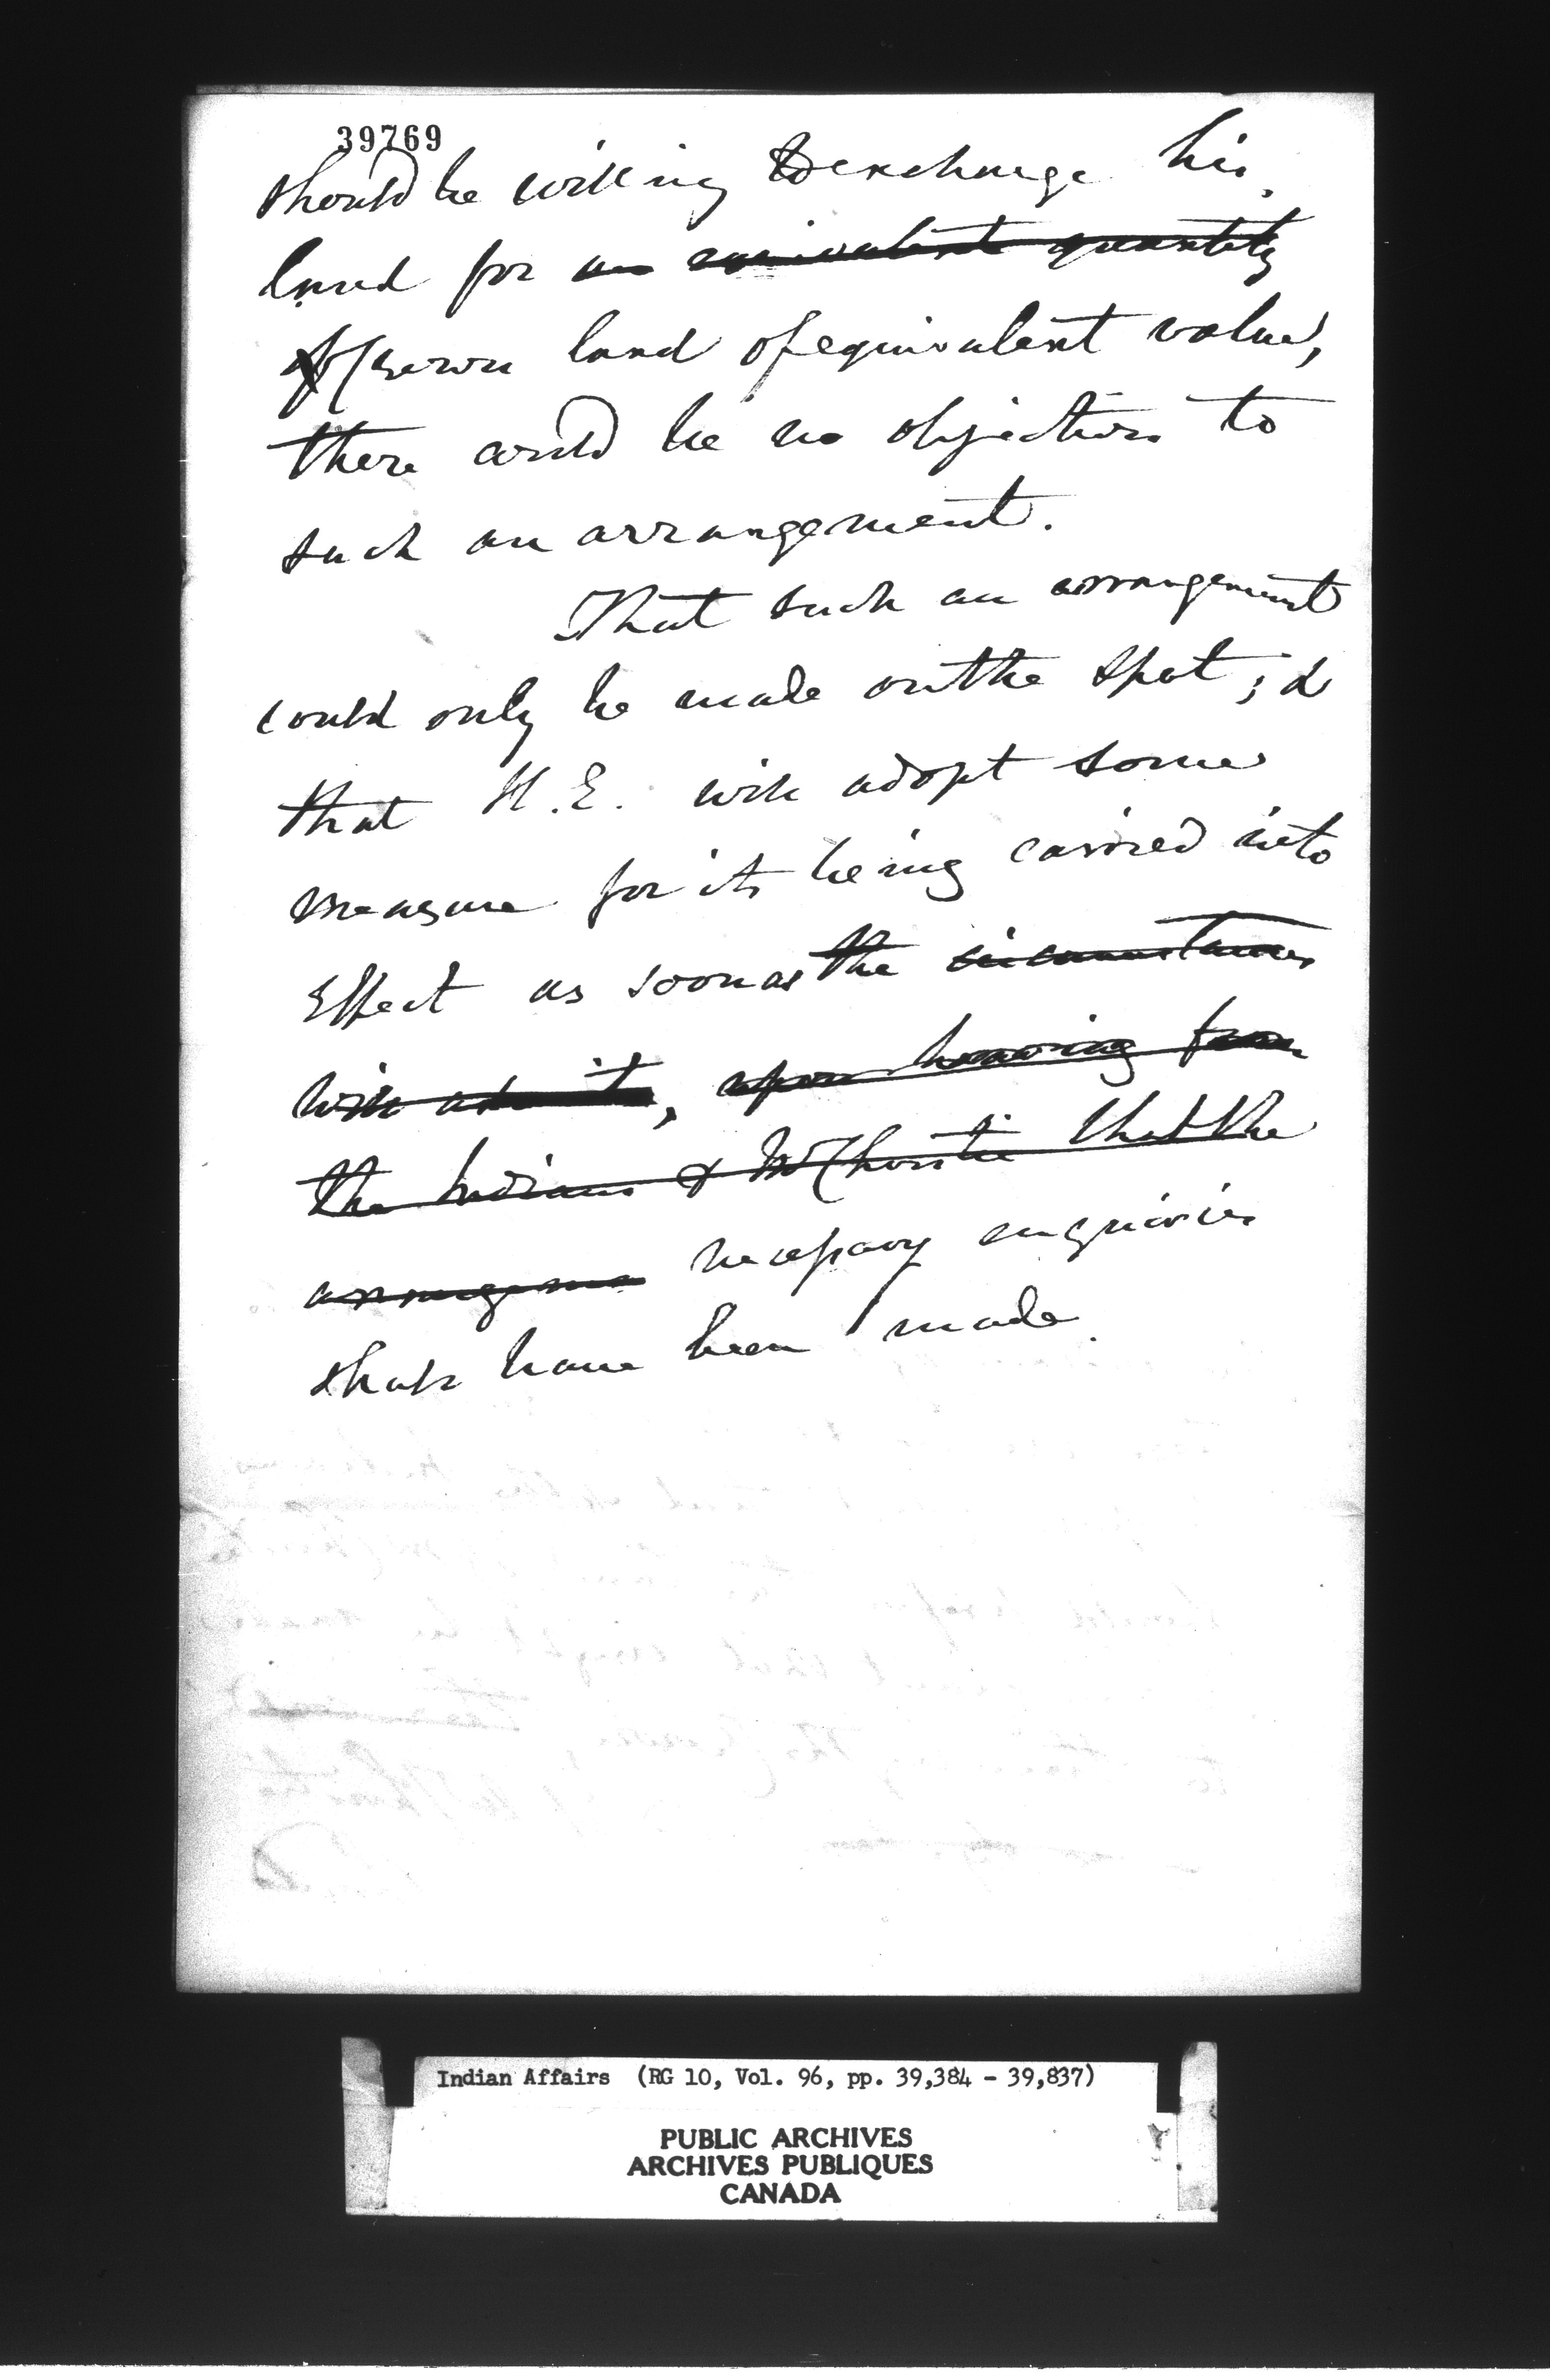 39769
should be willing to exchange his
land for an equivalent quantity
of Crown land of equivalent value,
there could be no objection to
such an arrangement.
That such an arrangement
could only be made on the spot; &
that H.E. will adopt some
measure for its being carried into
effect as soon as the circumstances
will admit, upon hearing from
the Indians & Mr Christie that the
arrangeme necessary enquiries
shall have been made.
Indian Affairs (RG 10, Vol. 96, pp. 39,384 - 39,837)
PUBLIC ARCHIVES
ARCHIVES PUBLIQUES
CANADA